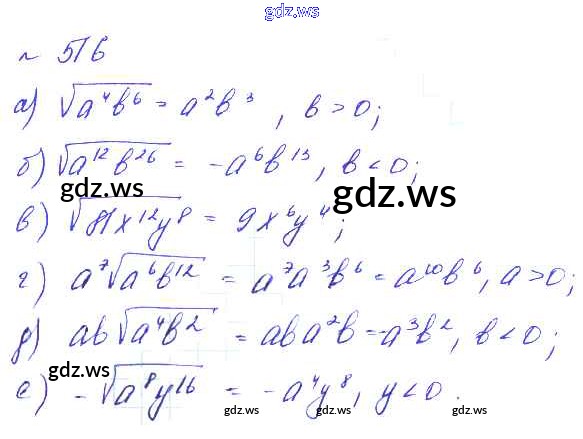 gdz.ws
№ 516
а) √a⁴b⁶ = a²b³, b > 0;
б) √a¹²b²⁶ = -a⁶b¹³, b < 0;
gdz.ws gdz.ws
в) √81x¹²y⁸ = 9x⁶y⁴;
г) a⁷√a⁶b¹² = a⁷a³b⁶ = a¹⁰b⁶, a > 0;
gdz.ws
д) ab√a⁴b² = aba²b = -a³b², b < 0;
gdz.ws
е) -√a⁸y¹⁶ = -a⁴y⁸, y < 0.
gdz.ws gdz.ws